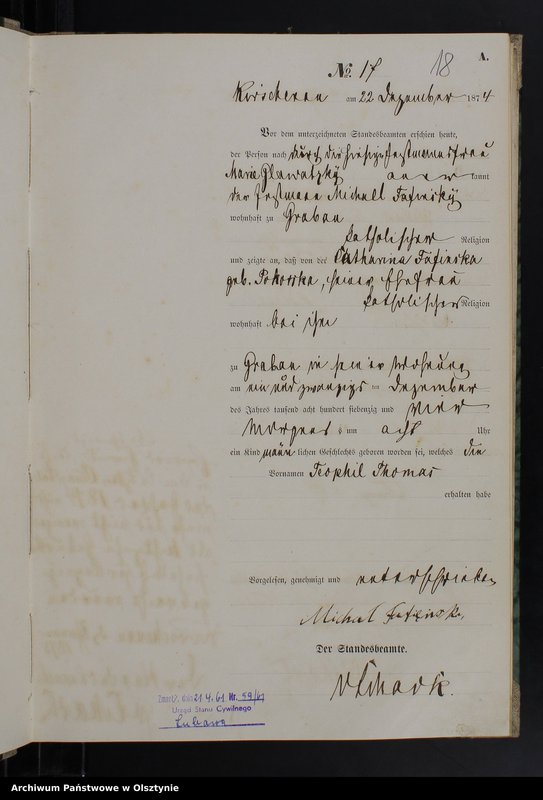 A.
18
No. 17
am 22 Dezember 1874
Vor dem unterzeichneten Standesbeamten erschien heute,
der Person nach durch die
Marie kannt
der Michael
wohnhaft zu Grabau
katholischer Religion
und zeigte an, daß von der Catharina
geb. seiner Ehefrau
katholischer Religion
wohnhaft bei ihm
zu Grabau in seiner Wohnung
am ein und zwanzigs ten Dezember
des Jahres tausend acht hundert siebenzig und vier
Morgens um acht Uhr
ein Kind männ lichen Geschlechts geboren worden sei, welches die
Vornamen Teophil Thomas
erhalten habe
Vorgelesen, genehmigt und unterschrieben
Michal
Der Standesbeamte.
Zmarł, dnia 21.4.61 Nr. 59/61
Urząd Stanu Cywilnego
Lubawa
Archiwum Państwowe w Olsztynie